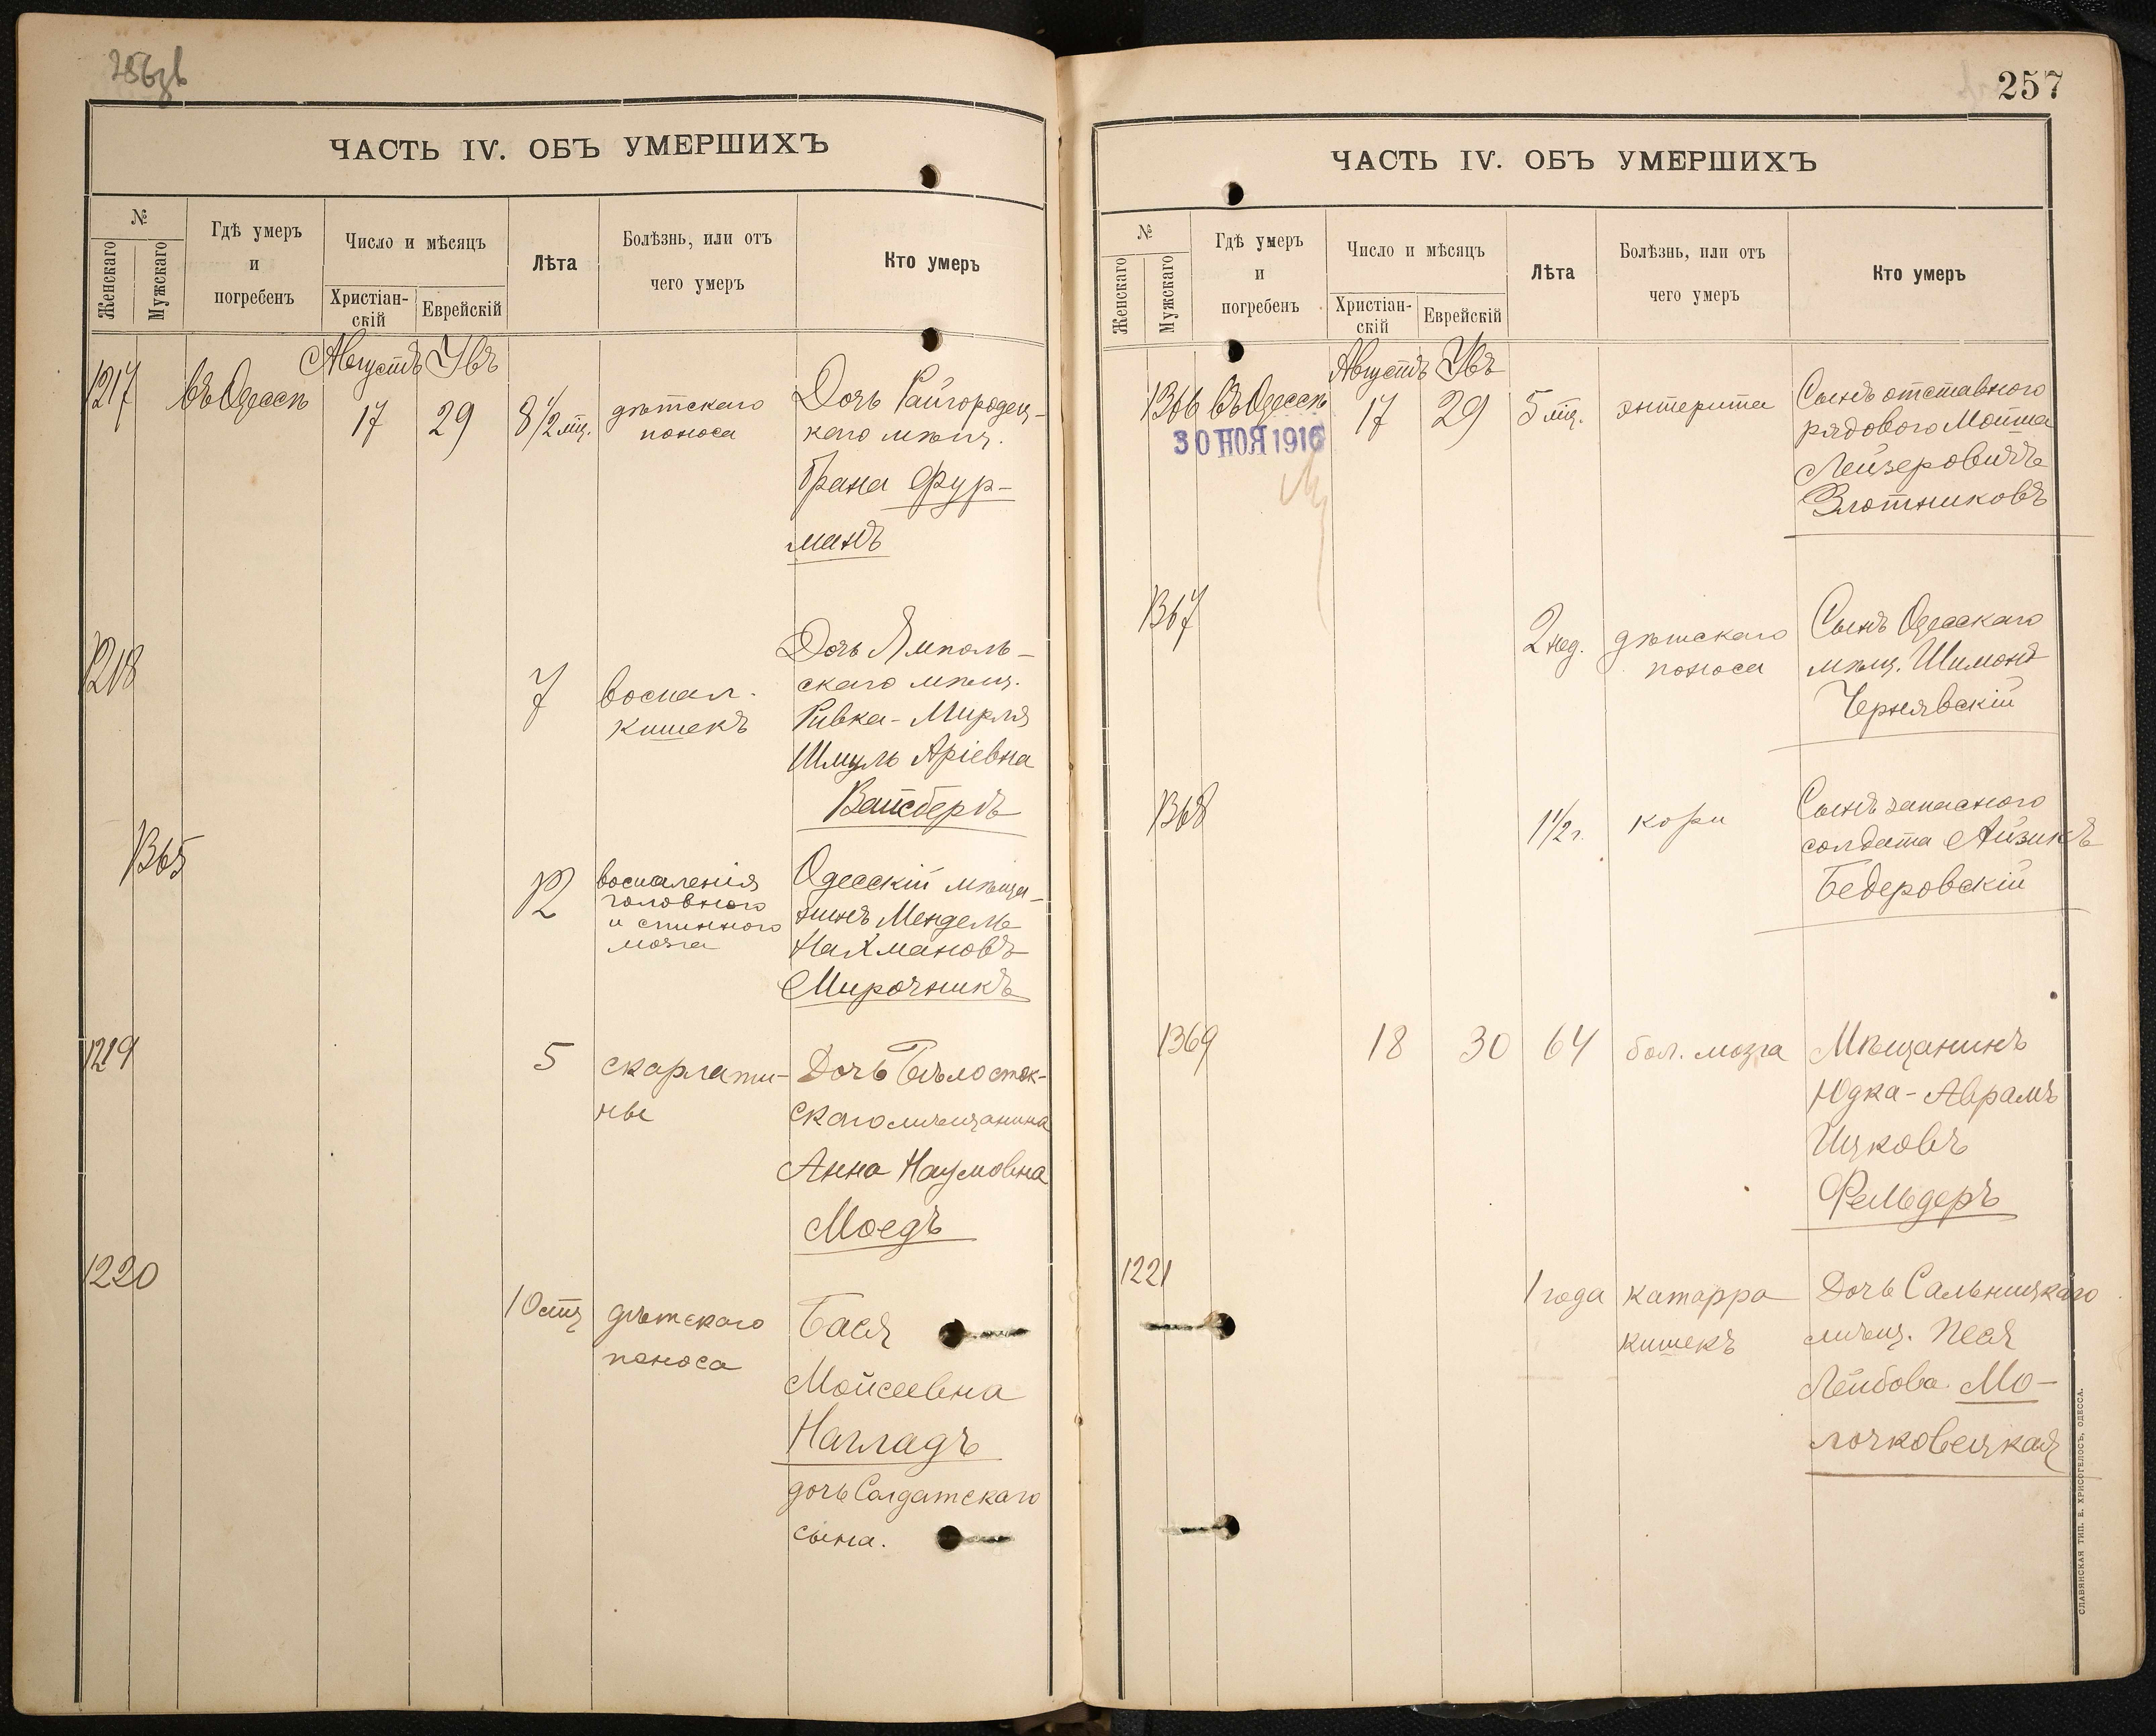 ЧАСТЬ IV. ОБЪ УМЕРШИХЪ
№
Женскаго
Мужскаго
Гдѣ умеръ
и
погребенъ
Число и мѣсяцъ
Христіан-
скій
Еврейскій
Лѣта
Болѣзнь, или отъ
чего умеръ
Кто умеръ
Августъ Увъ
1217 въ Одессѣ 17 29 8 1/2 мц. дѣтскаго
поноса
Дочь Райгородец-
каго мѣщ.
Брана Фур-
манъ
1218 7 воспал.
кишекъ
Дочь Ямполь-
скаго мѣщ.
Ривка-Мирля
Шмуль Аріевна
Вайсберъ
1365 12 воспаленія
головного
и спинного
мозга
Одесскій мѣща-
нинъ Мендель
Нахмановъ
Мирочникъ
1219 5 скарлати-
ны
Дочь Бѣлосток-
скаго мѣщанина
Анна Наумовна
Моедъ
1220 10 мц дѣтскаго
поноса
Бася
Мойсеевна
Нагладъ
дочь Солдатскаго
сына.
257
ЧАСТЬ IV. ОБЪ УМЕРШИХЪ
№
Женскаго
Мужскаго
Гдѣ умеръ
и
погребенъ
Число и мѣсяцъ
Христіан-
скій
Еврейскій
Лѣта
Болѣзнь, или отъ
чего умеръ
Кто умеръ
Августъ Увъ
1366 въ Одессѣ 17 29 5 мц. энтерита
30 НОЯ 1916
Сынъ отставного
рядового Мойша
Лейзеровичъ
Злотниковъ
1367 2 нед. дѣтскаго
поноса
Сынъ Одесскаго
мѣщ. Шимонъ
Чернявскій
1368 1 1/2 г. кори
Сынъ запасного
солдата Айзикъ
Бедеровскій
1369 18 30 64 бол. мозга
Мѣщанинъ
Юдка-Аврамъ
Ицковъ
Фельдеръ
1221 1 года катарра
кишекъ
Дочь Сальницкаго
мѣщ. Песя
Лейбова Мо-
лочковецкая
СЛАВЯНСКАЯ ТИП. Е. ХРИСОГЕЛОСЪ, ОДЕССА.